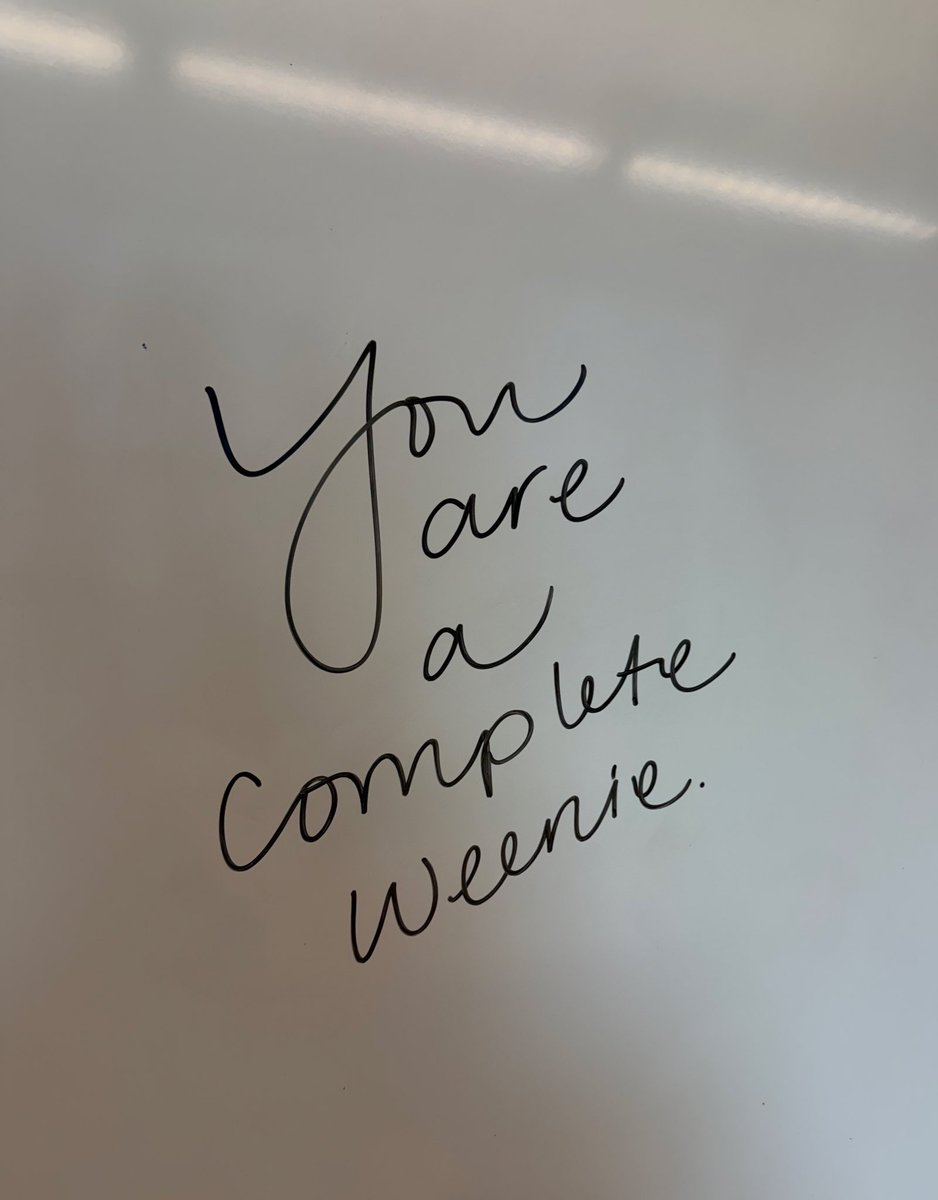 You
are
a
complete
weenie.